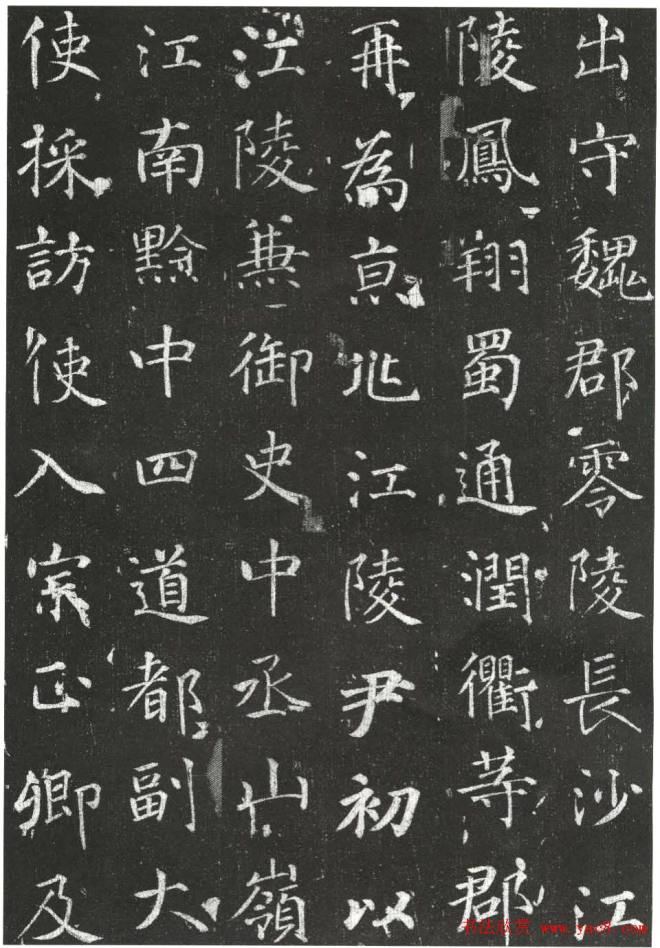 出守魏郡零陵長沙江
陵鳳翔蜀通潤衢等郡
再為京兆江陵尹初以
江陵兼御史中丞山嶺
江南黔中四道都副大
使採訪使入宗正卿及
书法欣赏 www.yac8.com